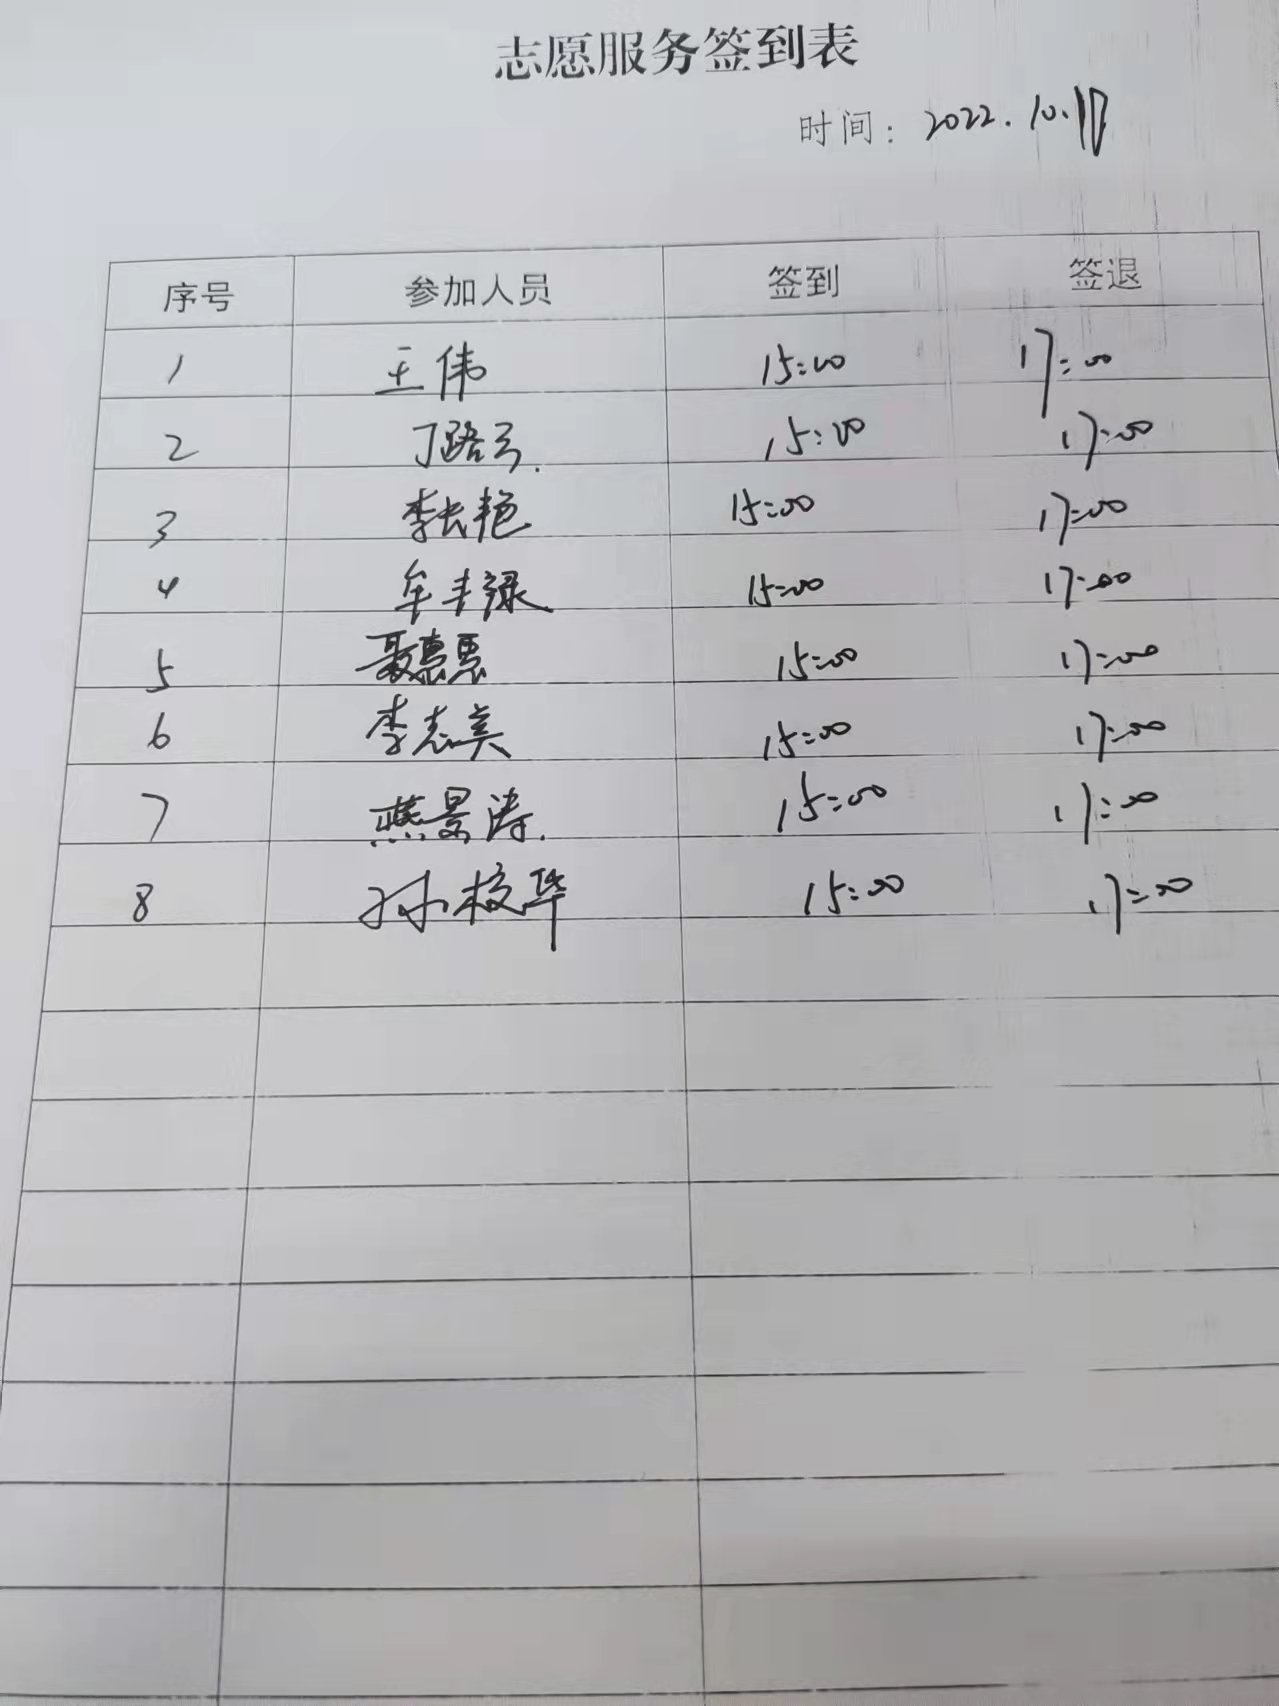 志愿服务签到表
时间：2022.10.
序号 参加人员 签到 签退
1 王伟 15:00 17:00
2 丁路云. 15:00 17:00
3 李长艳 15:00 17:00
4 牟丰禄 15:00 17:00
5 聂惠惠 15:00 17:00
6 李志美 15:00 17:00
7 燕景涛. 15:00 17:00
8 孙校华 15:00 17:00